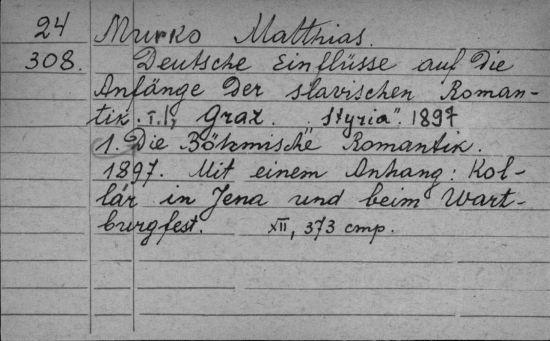 24 Murko Matthias.
308. Deutsche Einflüsse auf die
Anfänge der slavischen Roman-
tik. I.b, Graz. "Styria". 1897
1. Die Böhmische Romantik.
1897. Mit einem Anhang: Kol-
lár in Jena und beim Wart-
burgfest. XII, 373 cmp.